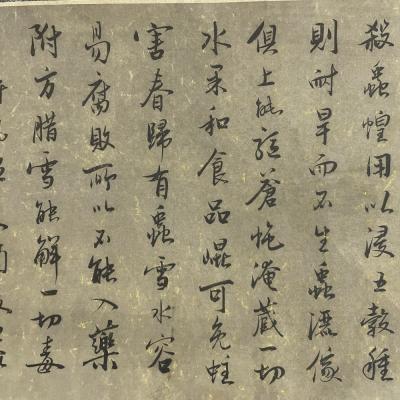 殺蟲蝗用以浸五穀種
則耐旱而不生蟲灑傢
俱上能驅蒼蠅淹藏一切
水果和食品可免蛀
害春歸有蟲雪水容
易腐敗所以不能入藥
附方臘雪能解一切毒